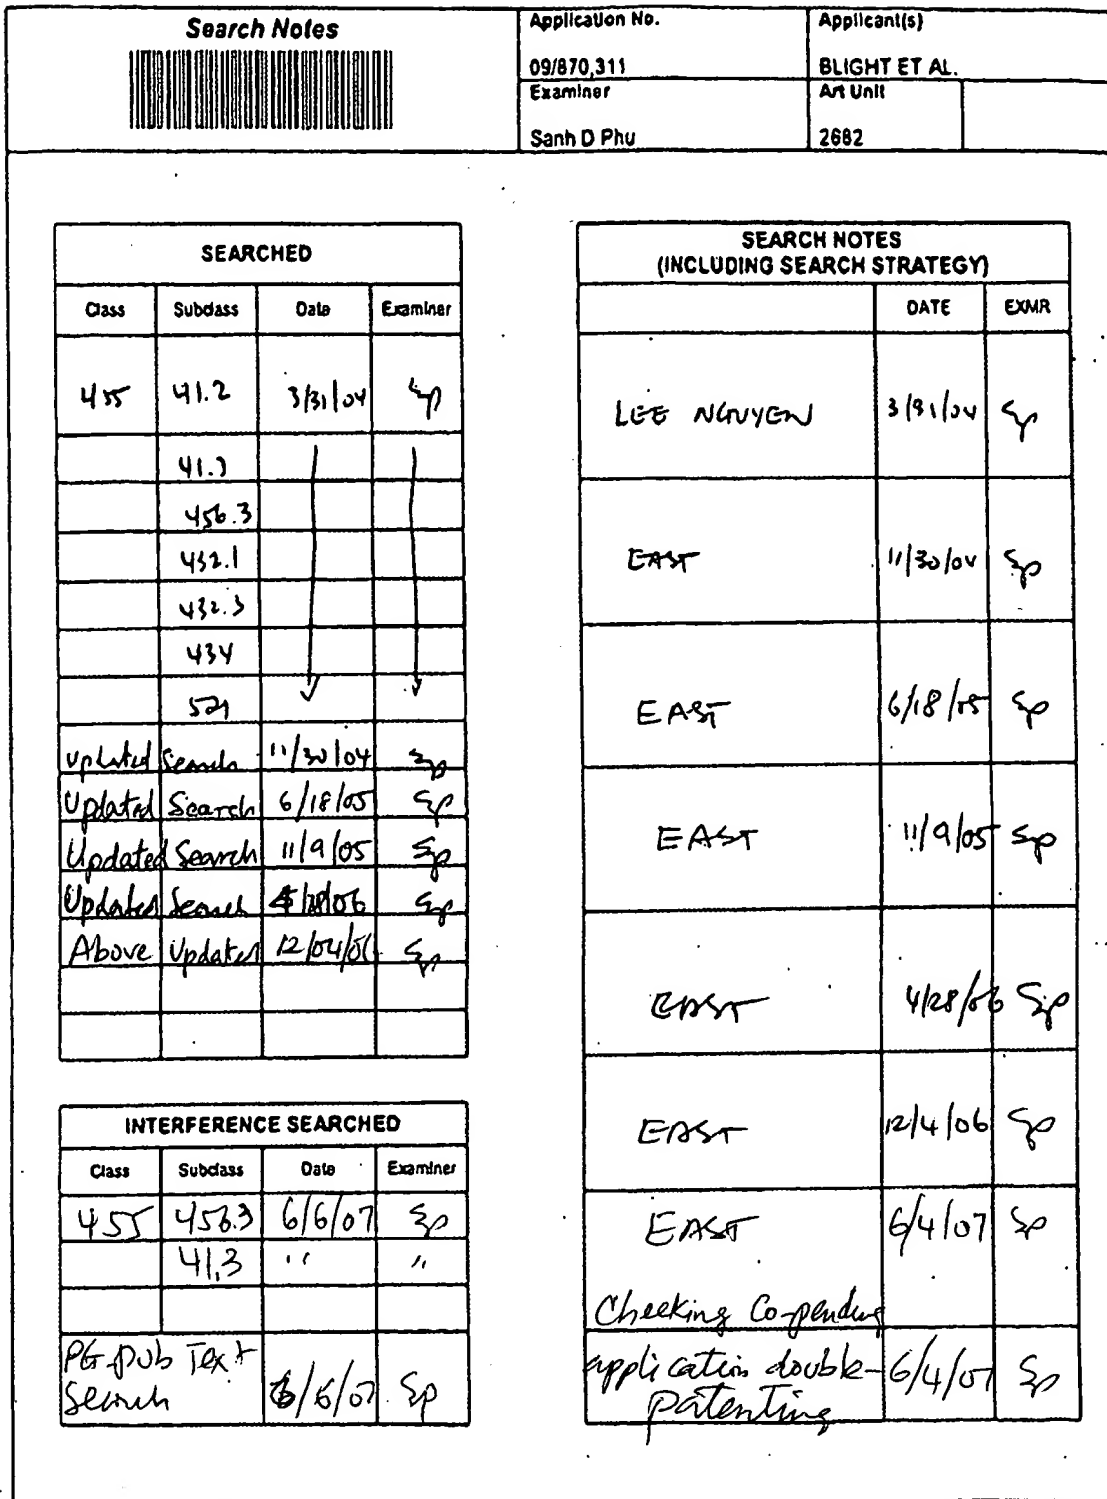 Search Notes
Application No.
Applicant(s)
09/870,311
BLIGHT ET AL.
Examiner
Art Unit
Sanh D Phu
2682
SEARCHED
Class Subclass Date Examiner
455 41.2 3/31/04 SP
41.3
456.3
432.1
432.3
434
Updated Search 11/30/04 SP
Updated Search 6/18/05 SP
Updated Search 11/9/05 SP
Updated Search 4/28/06 SP
Above Updated 12/04/06 SP
INTERFERENCE SEARCHED
Class Subclass Date Examiner
455 456.3 6/6/07 SP
41.3 " "
PG-pub Text
Search 6/6/07 SP
SEARCH NOTES
(INCLUDING SEARCH STRATEGY)
DATE EXMR
LEE NGUYEN 3/31/04 SP
EAST 11/30/04 SP
EAST 6/18/05 SP
EAST 11/9/05 SP
EAST 4/28/06 SP
EAST 12/4/06 SP
EAST 6/4/07 SP
Checking Co-pending
application double- 6/4/07 SP
patenting